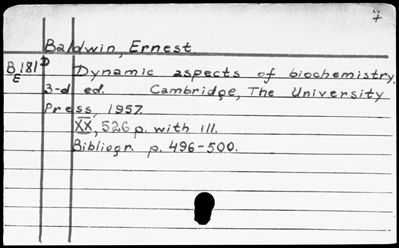 7
Baldwin, Ernest
B181D
E
Dynamic aspects of biochemistry,
3-d ed. Cambridge, The University
Press, 1957.
XX, 526 p. with ill.
Bibliogr. p. 496-500.